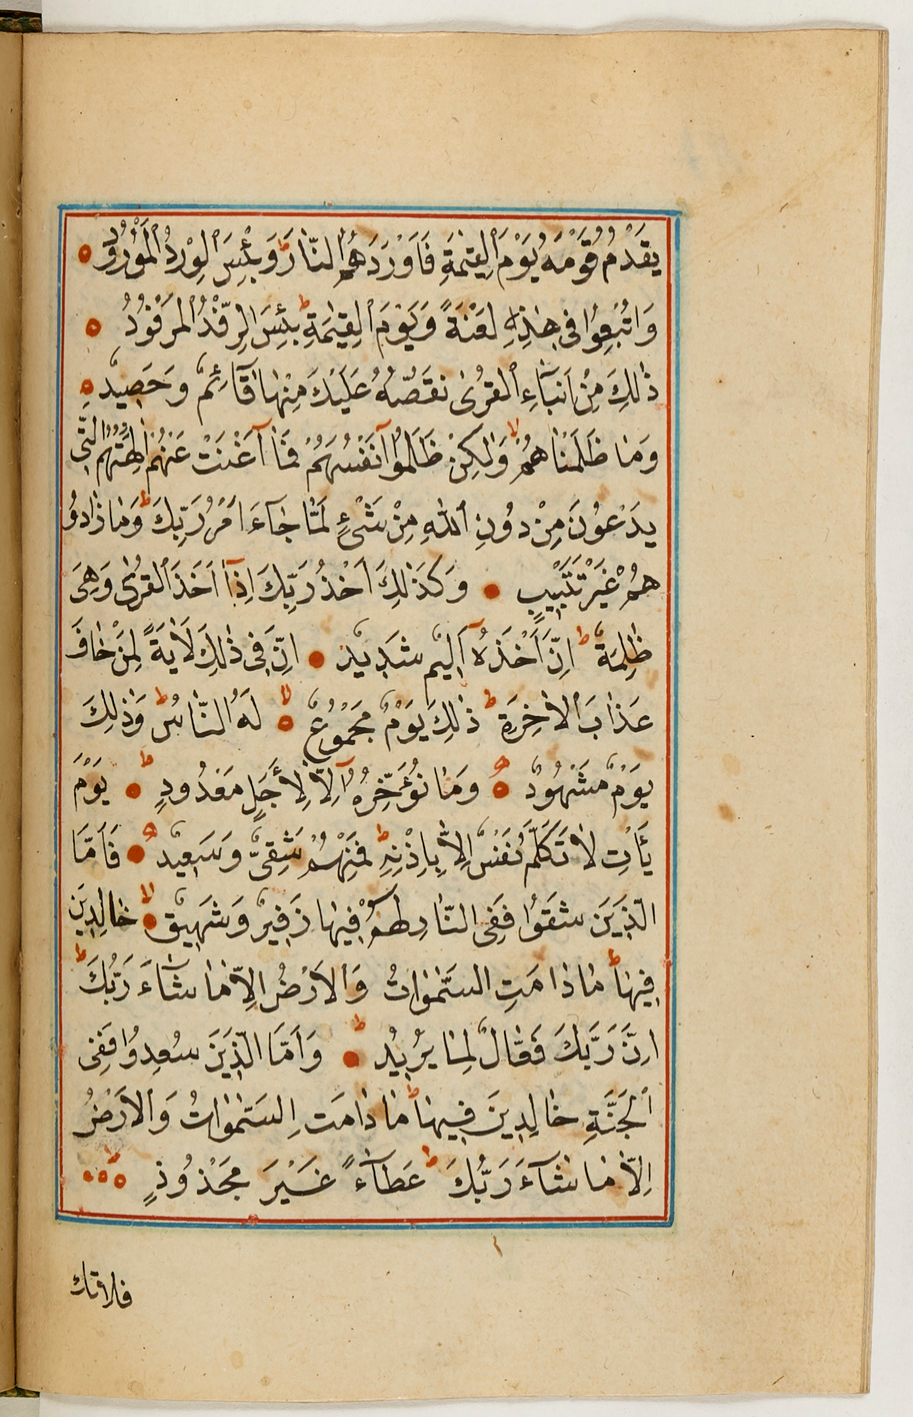 يَقْدُمُ قَوْمَهُ يَوْمَ الْقِيٰمَةِ فَاَوْرَدَهُمُ النَّارَ وَبِئْسَ الْوِرْدُ الْمَوْرُوْدُ
وَاُتْبِعُوْا فِي هٰذِهِ لَعْنَةً وَيَوْمَ الْقِيٰمَةِ بِئْسَ الرِّفْدُ الْمَرْفُوْدُ
ذٰلِكَ مِنْ اَنْبَآءِ الْقُرٰى نَقُصُّهُ عَلَيْكَ مِنْهَا قَآئِمٌ وَحَصِيدٌ
وَمَا ظَلَمْنَاهُمْ وَلٰكِنْ ظَلَمُوْآ اَنْفُسَهُمْ فَمَآ اَغْنَتْ عَنْهُمْ اٰلِهَتُهُمُ الَّتِى
يَدْعُوْنَ مِنْ دُوْنِ اللّٰهِ مِنْ شَىْءٍ لَمَّا جَآءَ اَمْرُ رَبِّكَ وَمَا زَادُوْ
هُمْ غَيْرَ تَتْبِيْبٍ وَكَذٰلِكَ اَخْذُ رَبِّكَ اِذَآ اَخَذَ الْقُرٰى وَهِىَ
ظٰلِمَةٌ اِنَّ اَخْذَهُٓ اَلِيمٌ شَدِيدٌ اِنَّ فِى ذٰلِكَ لَاٰيَةً لِمَنْ خَافَ
عَذَابَ الْاٰخِرَةِ ذٰلِكَ يَوْمٌ مَجْمُوْعٌ لَهُ النَّاسُ وَذٰلِكَ
يَوْمٌ مَشْهُوْدٌ وَمَا نُؤَخِّرُهُٓ اِلَّا لِاَجَلٍ مَعْدُودٍ يَوْمَ
يَأْتِ لَا تَكَلَّمُ نَفْسٌ اِلَّا بِاِذْنِهِ فَمِنْهُمْ شَقِىٌّ وَسَعِيدٌ فَاَمَّا
الَّذِيَن شَقُوْا فَفِى النَّارِ لَهُمْ فِيْهَا زَفِيرٌ وَشَهِيقٌ خَالِدِيَن
فِيْهَا مَا دَامَتِ السَّمٰوَاتُ وَالْاَرْضُ اِلَّا مَا شَآءَ رَبُّكَ
اِنَّ رَبَّكَ فَعَّالٌ لِمَا يُرِيْدُ وَاَمَّا الَّذِيَن سُعِدُوْا فَفِى
الْجَنَّةِ خَالِدِينَ فِيهَا مَا دَامَتِ السَّمٰوَاتُ وَالْاَرْضُ
اِلَّا مَا شَآءَ رَبُّكَ عَطَآءً غَيْرَ مَجْذُوْذٍ
فلا تك